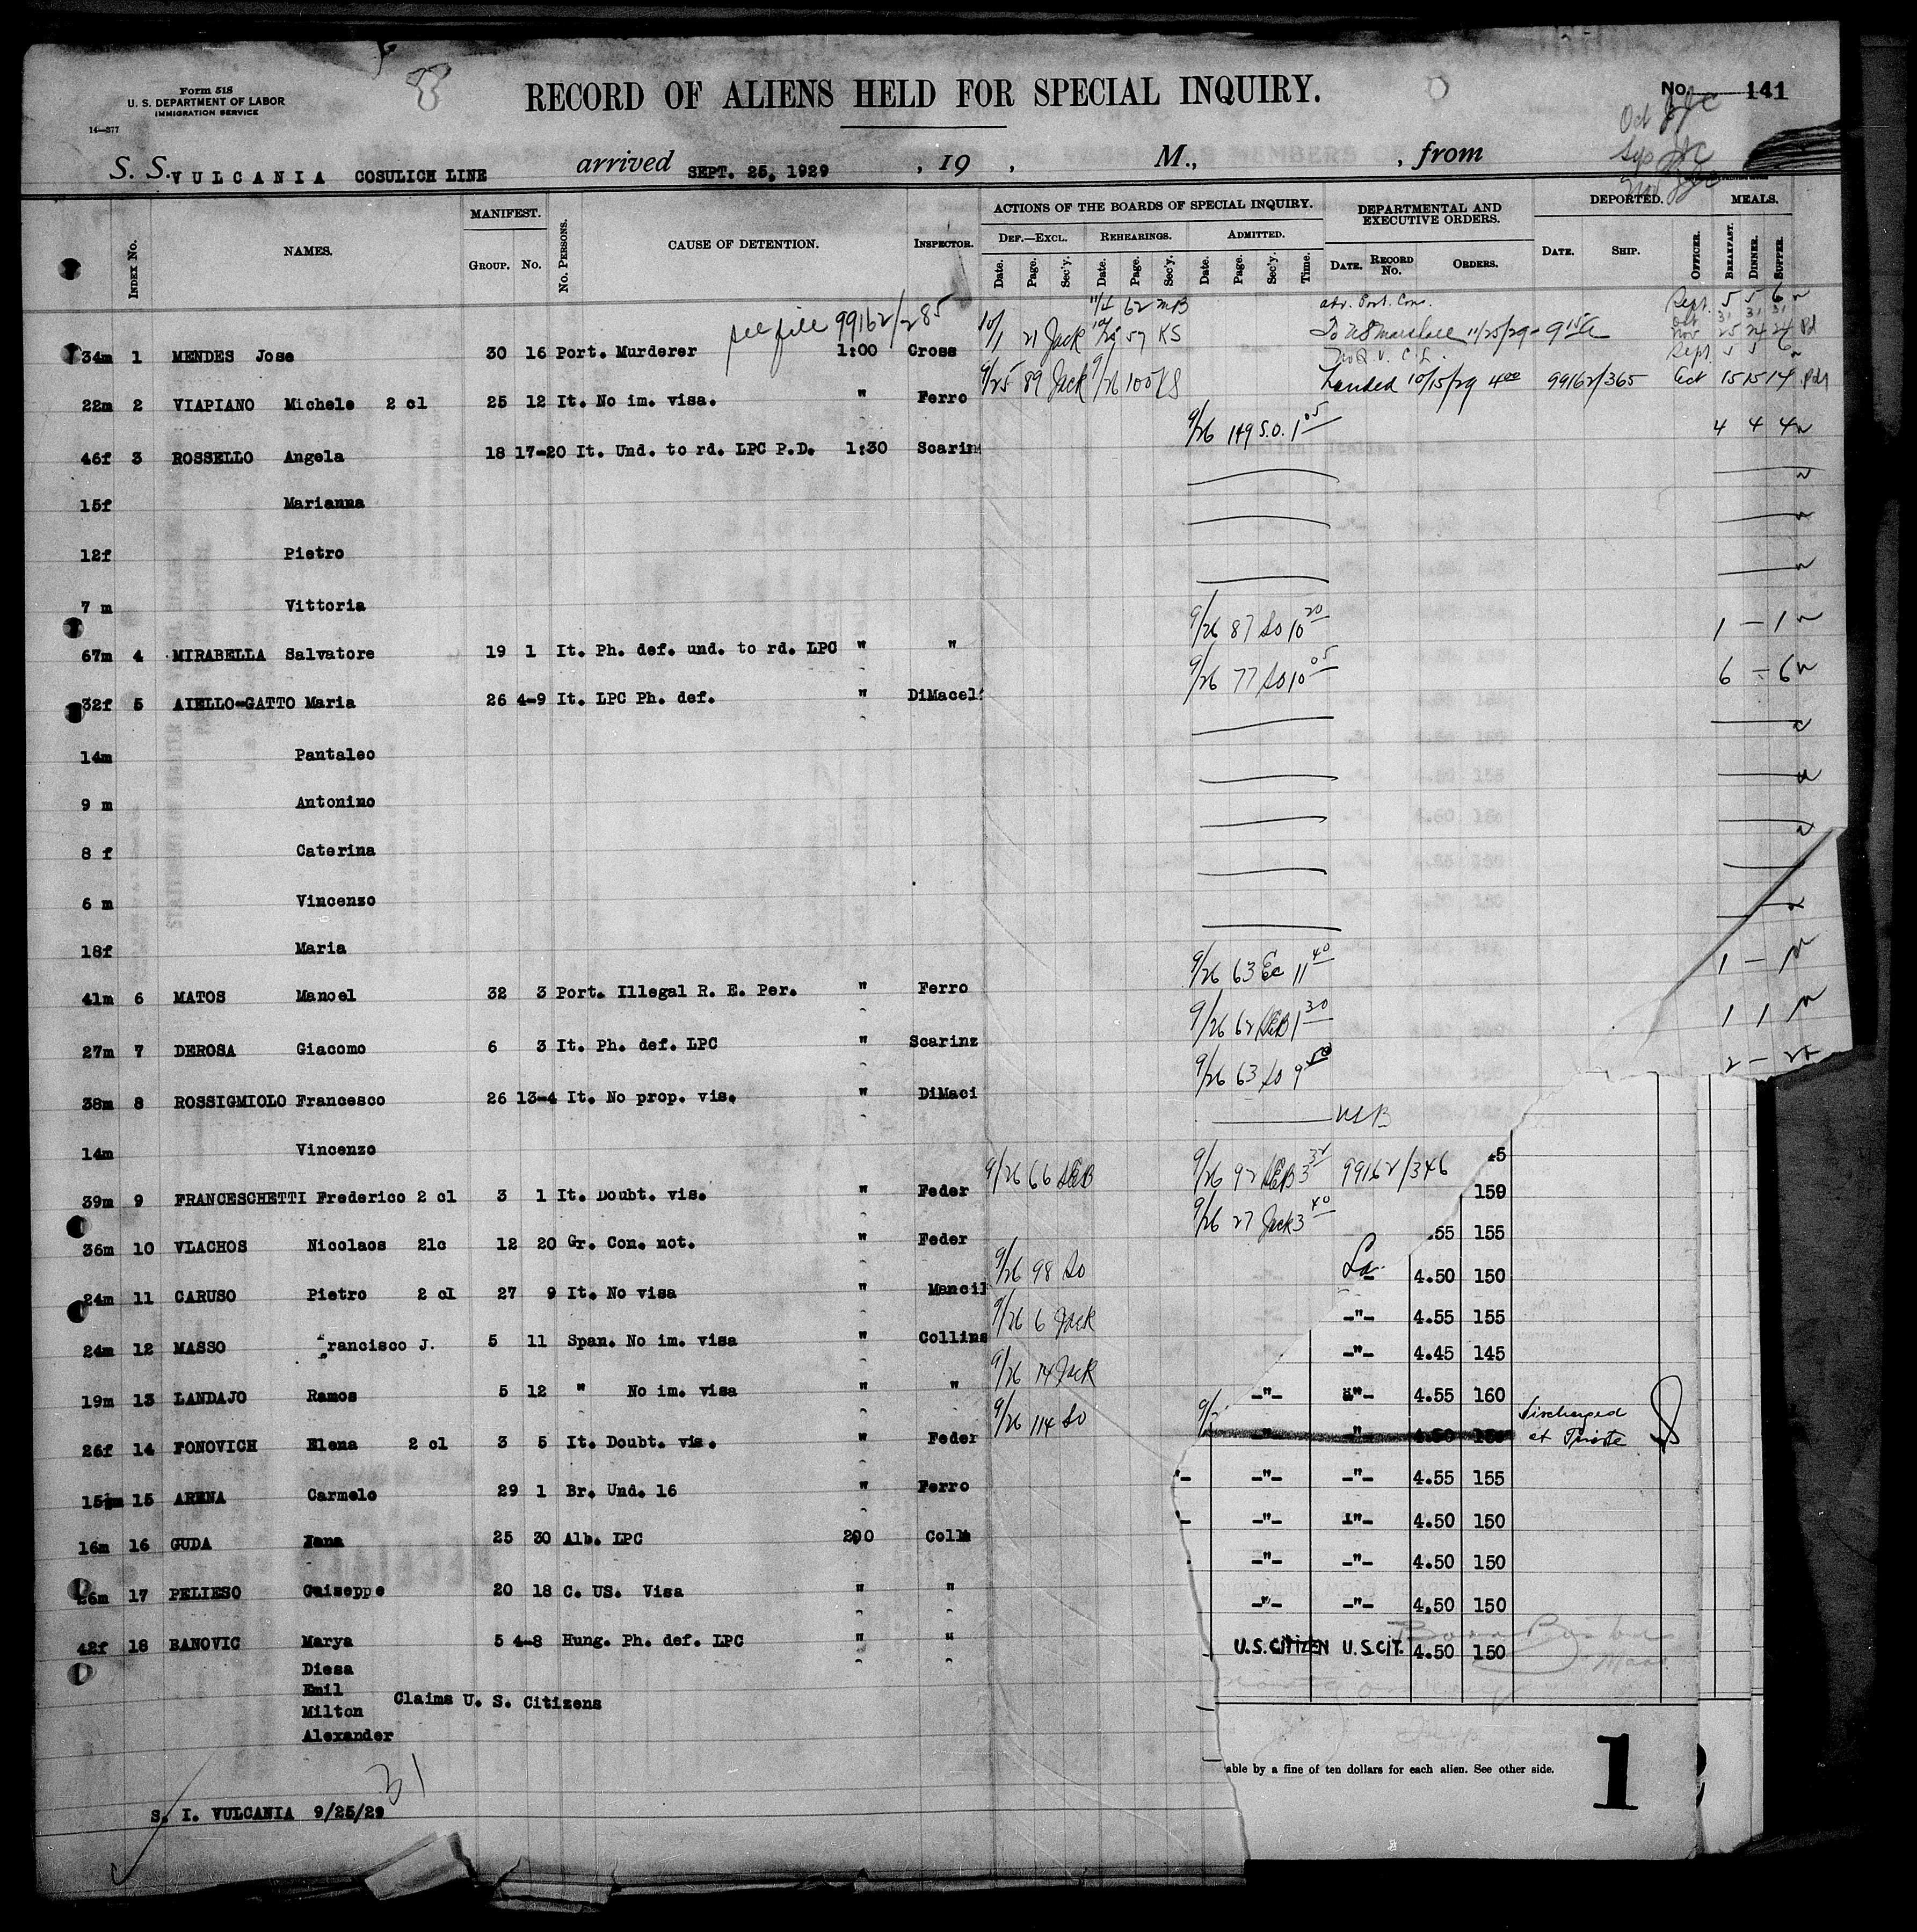 Form 518
U. S. DEPARTMENT OF LABOR
IMMIGRATION SERVICE
14—377
RECORD OF ALIENS HELD FOR SPECIAL INQUIRY.
No. 141
S. S. VULCANIA COSULICH LINE arrived SEPT. 25, 1929 , 19 , M., , from
INDEX NO. NAMES. MANIFEST. GROUP. NO. NO. PERSONS. CAUSE OF DETENTION. INSPECTOR.
ACTIONS OF THE BOARDS OF SPECIAL INQUIRY. DEF.—EXCL. REHEARINGS. ADMITTED.
Date. Page. Sec'y. Date. Page. Sec'y. Date. Page. Sec'y. Time.
DEPARTMENTAL AND EXECUTIVE ORDERS. DATE. RECORD NO. ORDERS.
DEPORTED. DATE. SHIP. OFFICER.
MEALS. BREAKFAST. DINNER. SUPPER.
see file 99162/285
11/4 62 MB
Sept. 5 5 6
Oct 31 31 31
34m 1 MENDES Jose 30 16 Port. Murderer 1:00 Cross 10/1 21 Jack 57 KS To US Marshall 11/25/29 9 15 Nov 25 24 24
Sept. 5 5 6
22m 2 VIAPIANO Michele 2 cl 25 12 It. No im. visa. " Ferro 9/25 89 Jack 9/26 100 KS Landed 10/15/29 4 00 99162/365 Oct 15 15 14
46f 3 ROSSELLO Angela 18 17-20 It. Und. to rd. LPC P.D. 1:30 Scarin 9/26 149 S.O. 1 05 4 4 4
15f Marianna
12f Pietro
7 m Vittoria
67m 4 MIRABELLA Salvatore 19 1 It. Ph. def. und. to rd. LPC " " 9/26 87 So 10 20 1 — 1
32f 5 AIELLO-GATTO Maria 26 4-9 It. LPC Ph. def. " DiMacel 9/26 77 So 10 05 6 — 6
14m Pantaleo
9 m Antonino
8 f Caterina
6 m Vincenzo
18f Maria
41m 6 MATOS Manoel 32 3 Port. Illegal R. E. Per. " Ferro 9/26 63 Ec 11 40 1 —
27m 7 DEROSA Giacomo 6 3 It. Ph. def. LPC " Scarinz 9/26 62 SEB 1 30 1 1
38m 8 ROSSIGMIOLO Francesco 26 13-4 It. No prop. vis. " DiMaci 9/26 63 So 9 50 2 — 2
14m Vincenzo
39m 9 FRANCESCHETTI Frederico 2 cl 3 1 It. Doubt. vis. " Feder 9/26 66 SEB 9/26 92 SEB 3 99162/346
36m 10 VLACHOS Nicolaos 2lc 12 20 Gr. Con. not. " Feder 9/26 27 Jack 3 40
24m 11 CARUSO Pietro 2 cl 27 9 It. No visa " Mancil 9/26 98 So
24m 12 MASSO Francisco J. 5 11 Span. No im. visa " Collins 9/26 6 Jack
19m 13 LANDAJO Ramos 5 12 " No im. visa " " 9/26 14 Jack
26f 14 FONOVICH Elena 2 cl 3 5 It. Doubt. vis. " Feder 9/26 114 So
15½m 15 ARENA Carmelo 29 1 Br. Und. 16 " Ferro
16m 16 GUDA Nana 25 30 Alb. LPC 200 Colli
26m 17 PELIESO Guiseppe 20 18 C. US. Visa " "
42f 18 BANOVIC Marya 5 4-8 Hung. Ph. def. LPC " "
Diesa
Emil
Milton Claims U. S. Citizens
Alexander
31
S. I. VULCANIA 9/25/29
159
.55 155
4.50 150
-"- 4.55 155
-"- 4.45 145
-"- -"- 4.55 160
-"- -"- 4.50 Discharged at Trieste
-"- -"- 4.55 155
-"- -"- 4.50 150
-"- -"- 4.50 150
-"- -"- 4.50 150
U.S. CITIZEN U.S. CIT. 4.50 150
able by a fine of ten dollars for each alien. See other side.
1